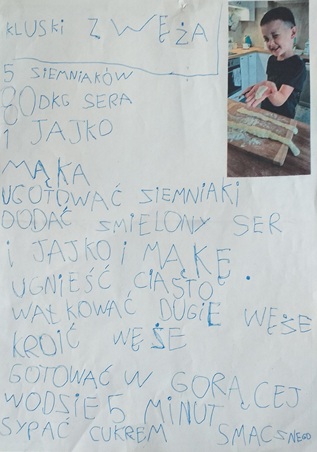 KLUSKI Z WĘŻA
5 SIEMNIAKÓW
80 DKG SERA
1 JAJKO
MĄKA
UGOTOWAĆ SIEMNIAKI
DODAĆ SMIELONY SER
i JAJKO i MĄKĘ
UGNIEŚĆ CIASTO.
WAŁKOWAĆ DUGIE WĘŻE
KROIĆ WĘŻE
GOTOWAĆ W GORĄCEJ
WODZIE 5 MINUT
SYPAĆ CUKREM SMACSNEGO